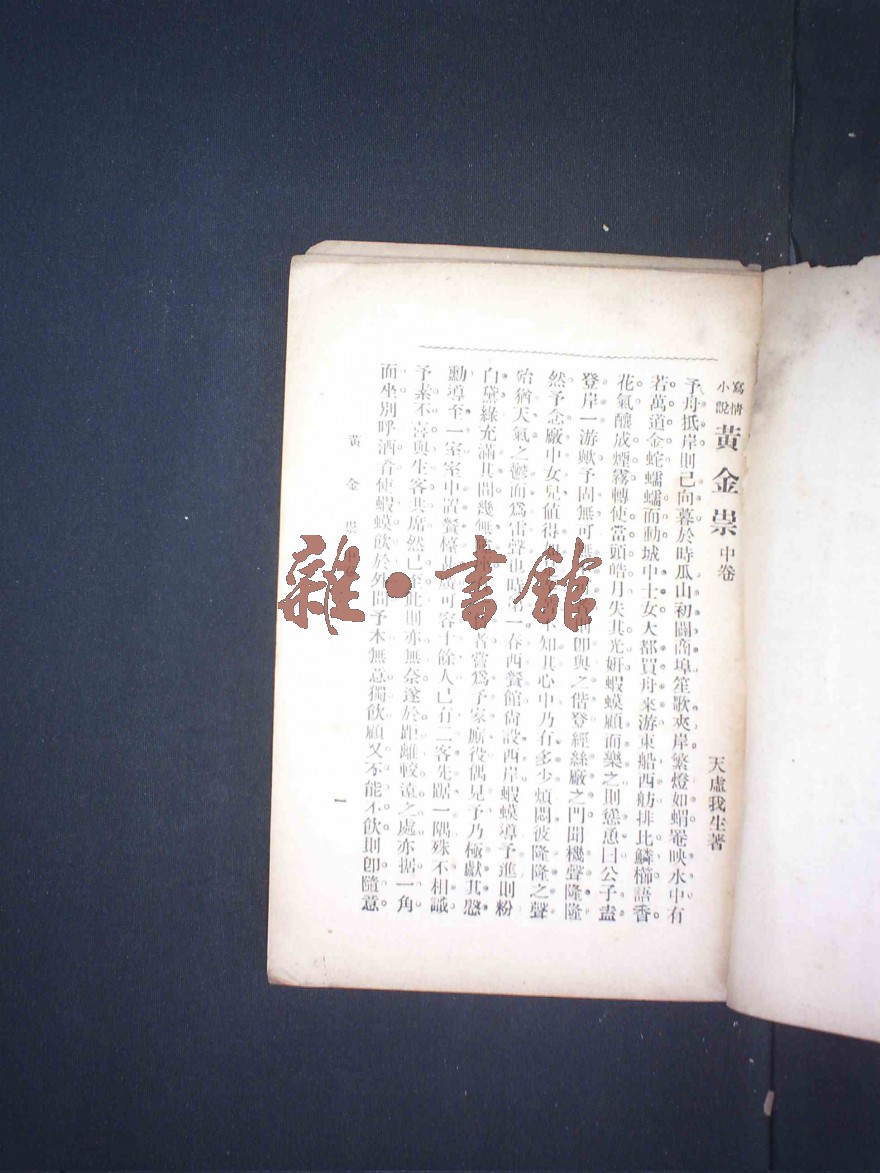 寫情小說 黃金祟 中卷
天虛我生著
予舟抵岸則已向暮於時瓜山初闢商埠笙歌夾岸繁燈如蝟罨映水中有
若萬道金蛇蠕蠕而動城中士女大都買舟來游東船西舫排比鱗櫛語香
花氣釀成煙霧轉使當頭皓月失其光妍蝦蟆顧而樂之則慫恿曰公子盍
登岸一游歟予固無可無 則卽與之偕登經絲廠之門聞機聲隆隆
然予念廠中女兒値得 不知其心中乃有多少煩悶彼隆隆之聲
殆猶天氣之鬱而爲雷聲也時 一春西餐館尙設西岸蝦蟆導予進則粉
白黛綠充滿其間幾無 者嘗爲予家廝役偶見予乃極獻其慇
勤導至一室室中置餐檯甚廣可容十餘人已有二客先踞一隅殊不相識
予素不喜與生客共席然已至此則亦無奈遂於距離較遠之處亦据一角
而坐別呼酒肴使蝦蟆飲於外間予本無意獨飲顧又不能不飲則卽隨意
黃金祟
一
雜·書館